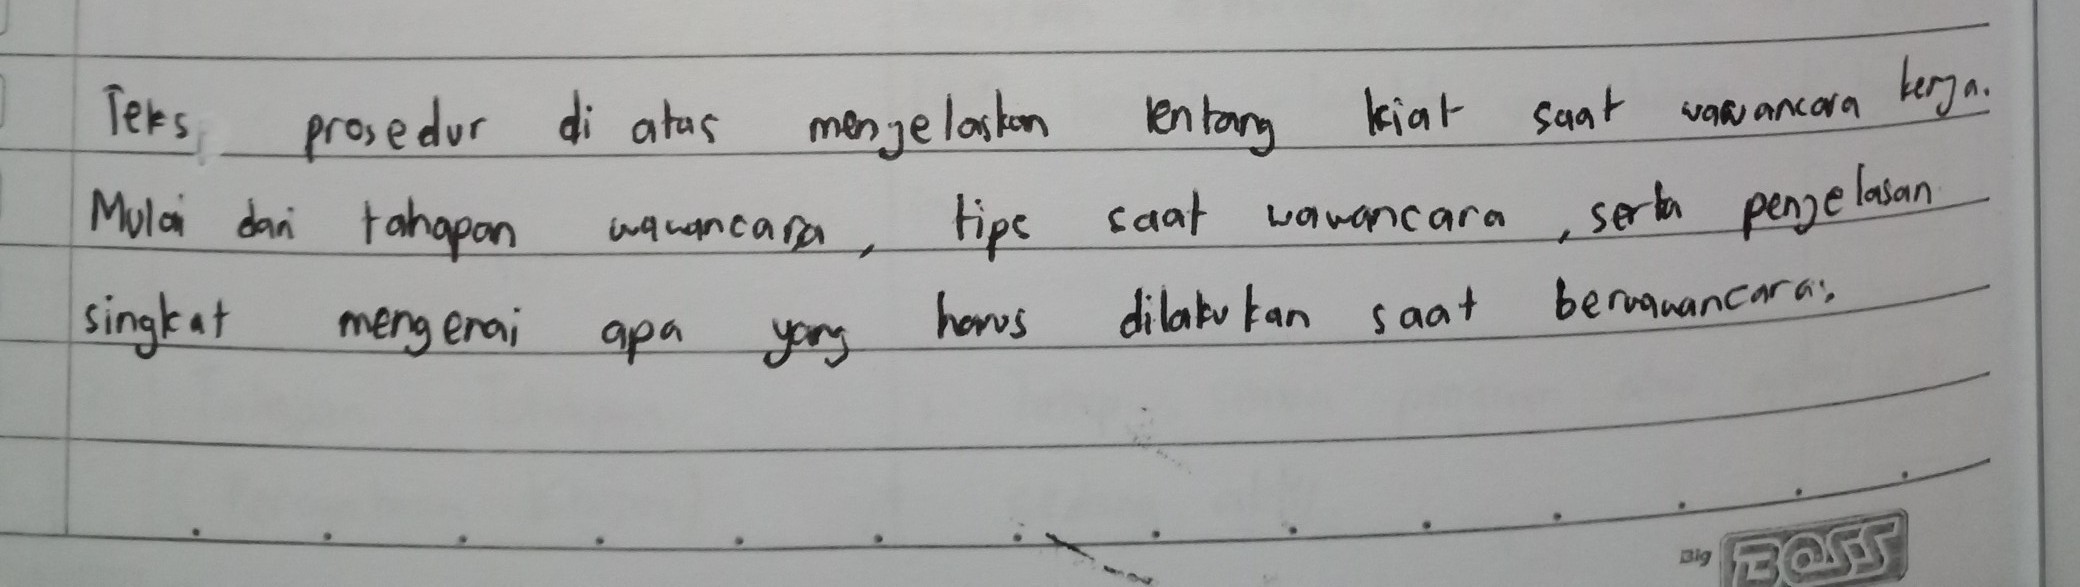 Teks prosedur di atas menjelaskan tentang kiat saat wawancara kerja.
Mulai dari tahapan wawancara, tips saat wawancara, serta penjelasan
singkat mengenai apa yang harus dilakukan saat berwawancara.
Big BOSS